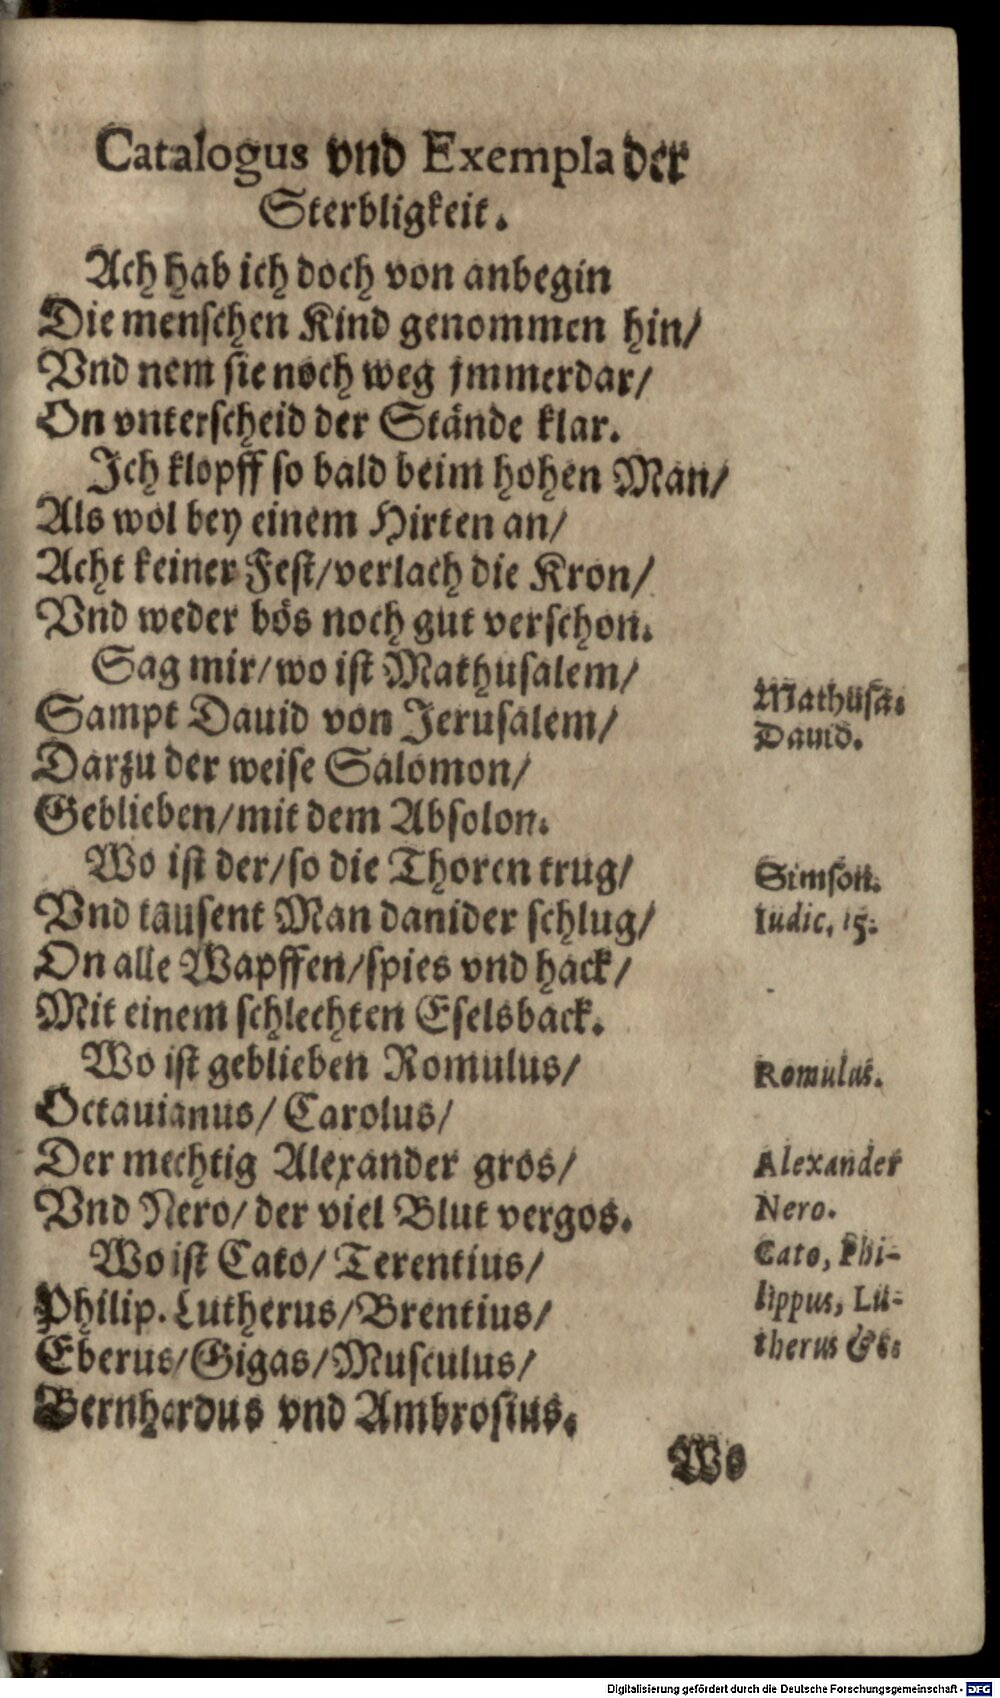 Catalogus vnd Exempla der
Sterbligkeit.
Ach hab ich doch von anbegin
Die menschen Kind genommen hin/
Vnd nem sie noch weg jmmerdar/
On vnterscheid der Stände klar.
Ich klopff so bald beim hohen Man/
Als wol bey einem Hirten an/
Acht keiner Fest/verlach die Kron/
Vnd weder bös noch gut verschon.
Sag mir/wo ist Mathusalem/
Sampt Dauid von Jerusalem/
Darzu der weise Salomon/
Geblieben/mit dem Absolon.
Wo ist der/so die Thoren trug/
Vnd tausent Man danider schlug/
On alle Wapffen/spies vnd hack/
Mit einem schlechten Eselsback.
Wo ist geblieben Romulus/
Octauianus/ Carolus/
Der mechtig Alexander gros/
Vnd Nero/ der viel Blut vergos.
Wo ist Cato/ Terentius/
Philip. Lutherus/Brentius/
Eberus/Gigas/Musculus/
Bernhardus vnd Ambrosius.
Wo
Mathusa.
Dauid.
Simson.
Iudic. 15.
Romulus.
Alexander
Nero.
Cato, Phi-
lippus, Lu-
therus &c.
Digitalisierung gefördert durch die Deutsche Forschungsgemeinschaft - DFG